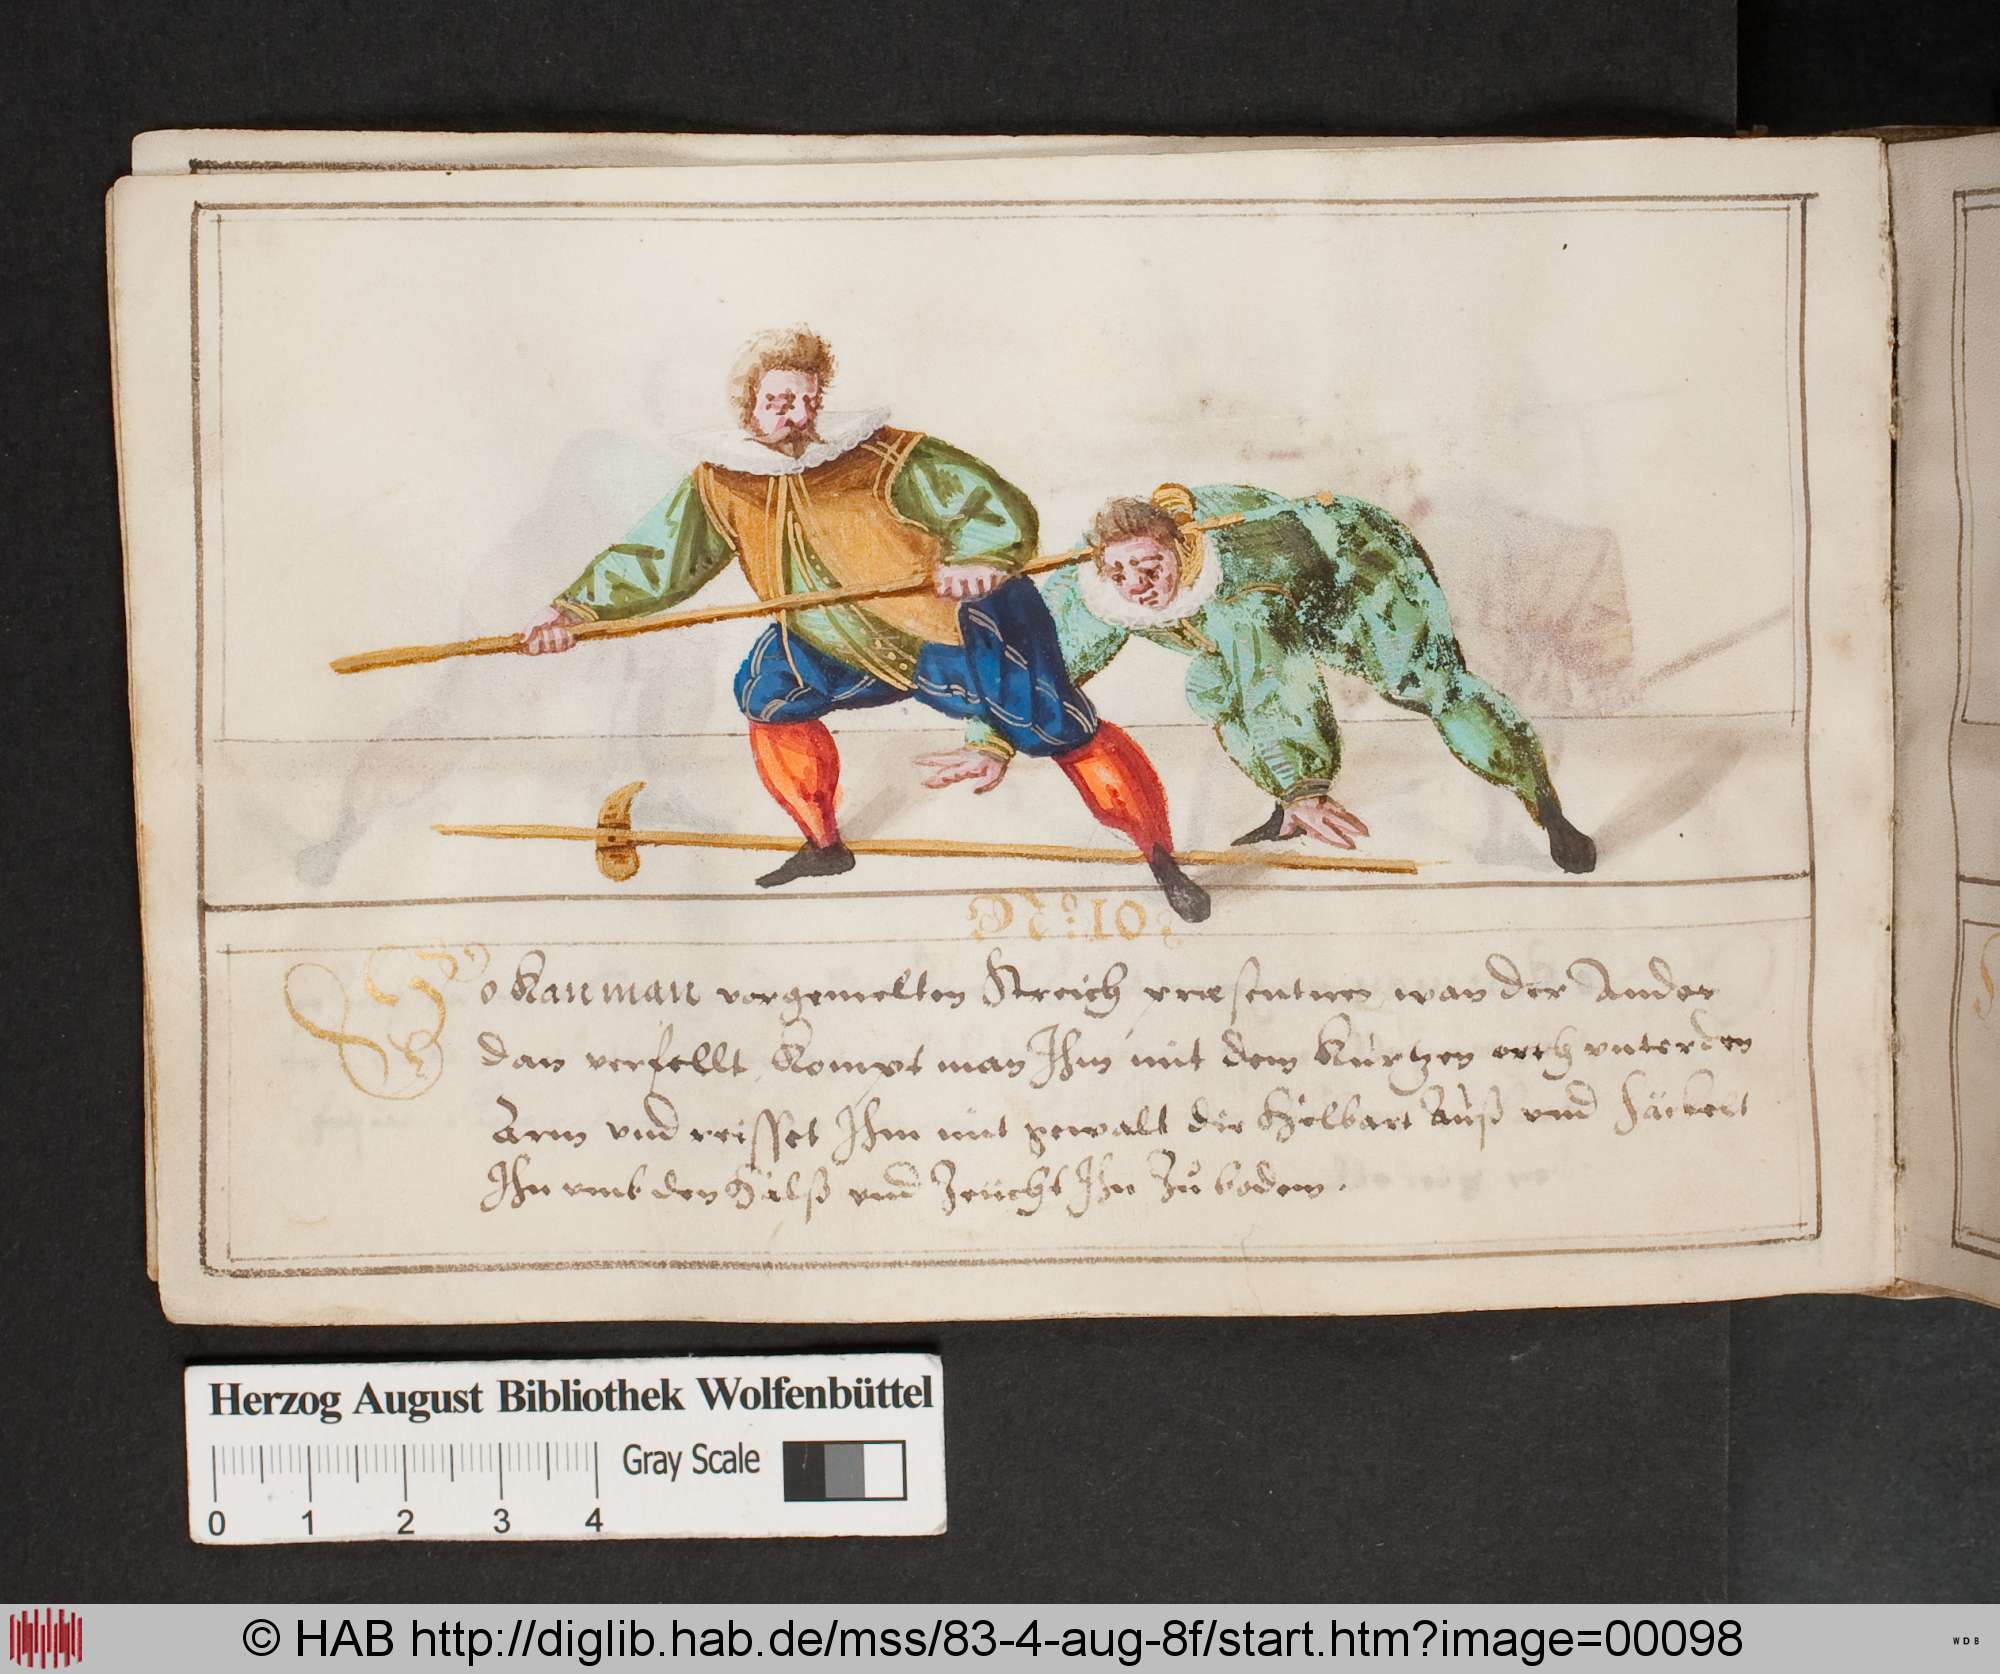 So Kan man vorgemelten Streich præsentiren, wan der Ander
dan verfellt, Kompt man Ihm mit dem Kurtzen orth unter den
Arm und reisset Ihm mit gewalt die Helbart Auß und häckelt
Ihn umb den Halß und Zeücht Ihn Zu bodem.
Herzog August Bibliothek Wolfenbüttel
Gray Scale
0 1 2 3 4
© HAB http://diglib.hab.de/mss/83-4-aug-8f/start.htm?image=00098
WDB